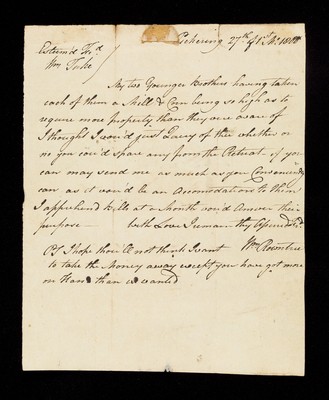 Pickering 27th of 1st Mo. 1800
Esteem'd Frd
Wm Tuke
My two Younger Brothers having taken
each of them a Mill & Corn being so high as to
require more property than they were aware of
I thought I wou'd just Query of thee whether or
no you cou'd spare any from the Retreat - if you
can may send me as much as you Conveniently
can as it wou'd be an Accomodation to them
I apprehend Bills at a Month wou'd Answer their
purpose — with Love I remain thy Assured Frd.
Wm Rowntree
PS I hope thou'll not think I want
to take the Money away except you have got more
on Hand than is wanted